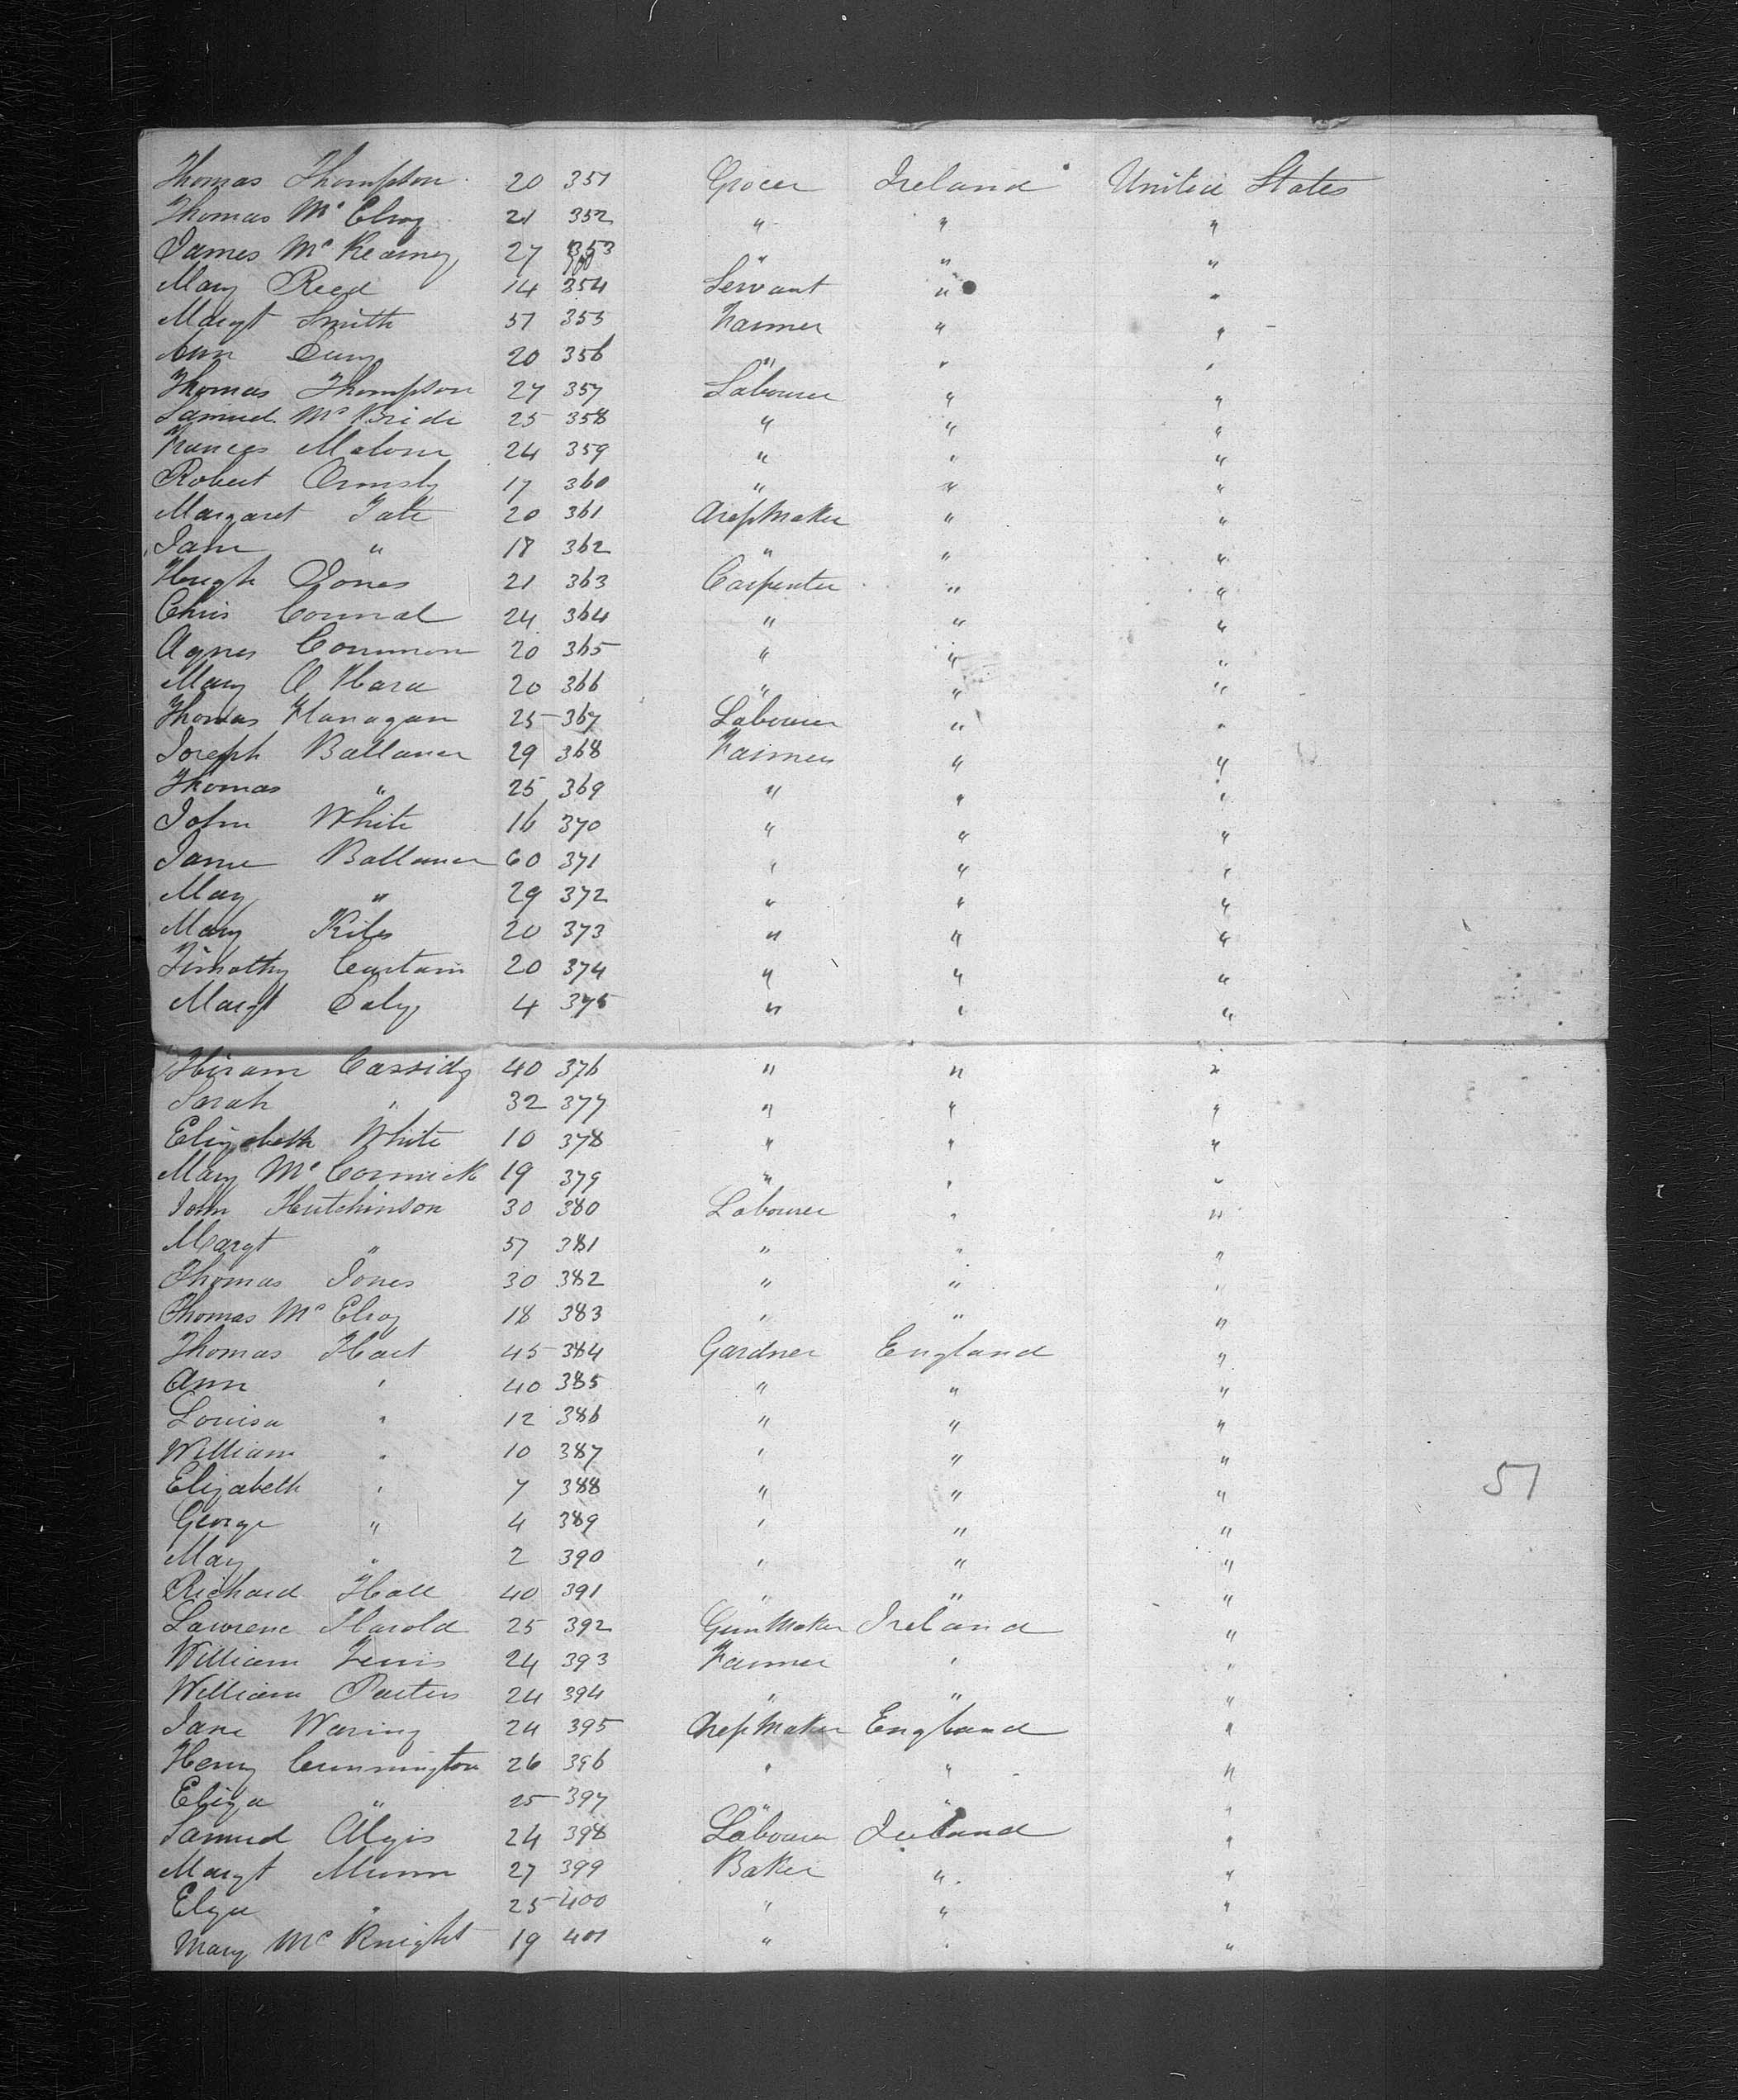 Thomas Thompson 20 351 Grocer Ireland United States
Thomas Mc Elroy 21 352 " " "
James Mc Kearney 27 353 " " "
Mary Reed 14 354 Servant " "
Margt Smith 57 355 Farmer " "
Ann 20 356 " " "
Thomas Thompson 27 357 Labourer " "
Samuel Mc Bride 25 358 " " "
Frances Malone 24 359 " " "
Robert Ormsby 17 360 " " "
Margaret Tate 20 361 Drefs Maker " "
Jane " 18 362 " " "
Hugh Jones 21 363 Carpenter " "
Chris Connal 24 364 " " "
Agnes Common 20 365 " " "
Mary O Hara 20 366 " " "
Thomas Flanagan 25 367 Labourer " "
Joseph Ballance 29 368 Farmer " "
Thomas " 25 369 " " "
John White 16 370 " " "
Jane Ballance 60 371 " " "
Mary " 29 372 " " "
Mary 20 373 " " "
Timothy Curtain 20 374 " " "
Margt Daly 4 375 " " "
Hiram Cassidy 40 376 " " "
Sarah " 32 377 " " "
Elizabeth White 10 378 " " "
Mary Mc Cormick 19 379 " " "
John Hutchinson 30 380 Labourer " "
Margt " 57 381 " " "
Thomas Jones 30 382 " " "
Thomas Mc Elroy 18 383 " " "
Thomas Hart 45 384 Gardner England "
Ann " 40 385 " " "
Louisa " 12 386 " " "
William " 10 387 " " "
Elizabeth " 7 388 " " "
George " 4 389 " " "
Mary " 2 390 " " "
51
Richard Hall 40 391 " " "
Lawrence Harold 25 392 Gun Maker Ireland "
William 24 393 Farmer " "
William 24 394 " " "
Jane Waring 24 395 Drefs Maker England "
Henry Cunnington 26 396 " " "
Eliza " 25 397 " " "
Samuel 24 398 Labourer Ireland "
Margt Munn 27 399 Baker " "
Eliza " 25 400 " " "
Mary Mc Knight 19 401 " " "